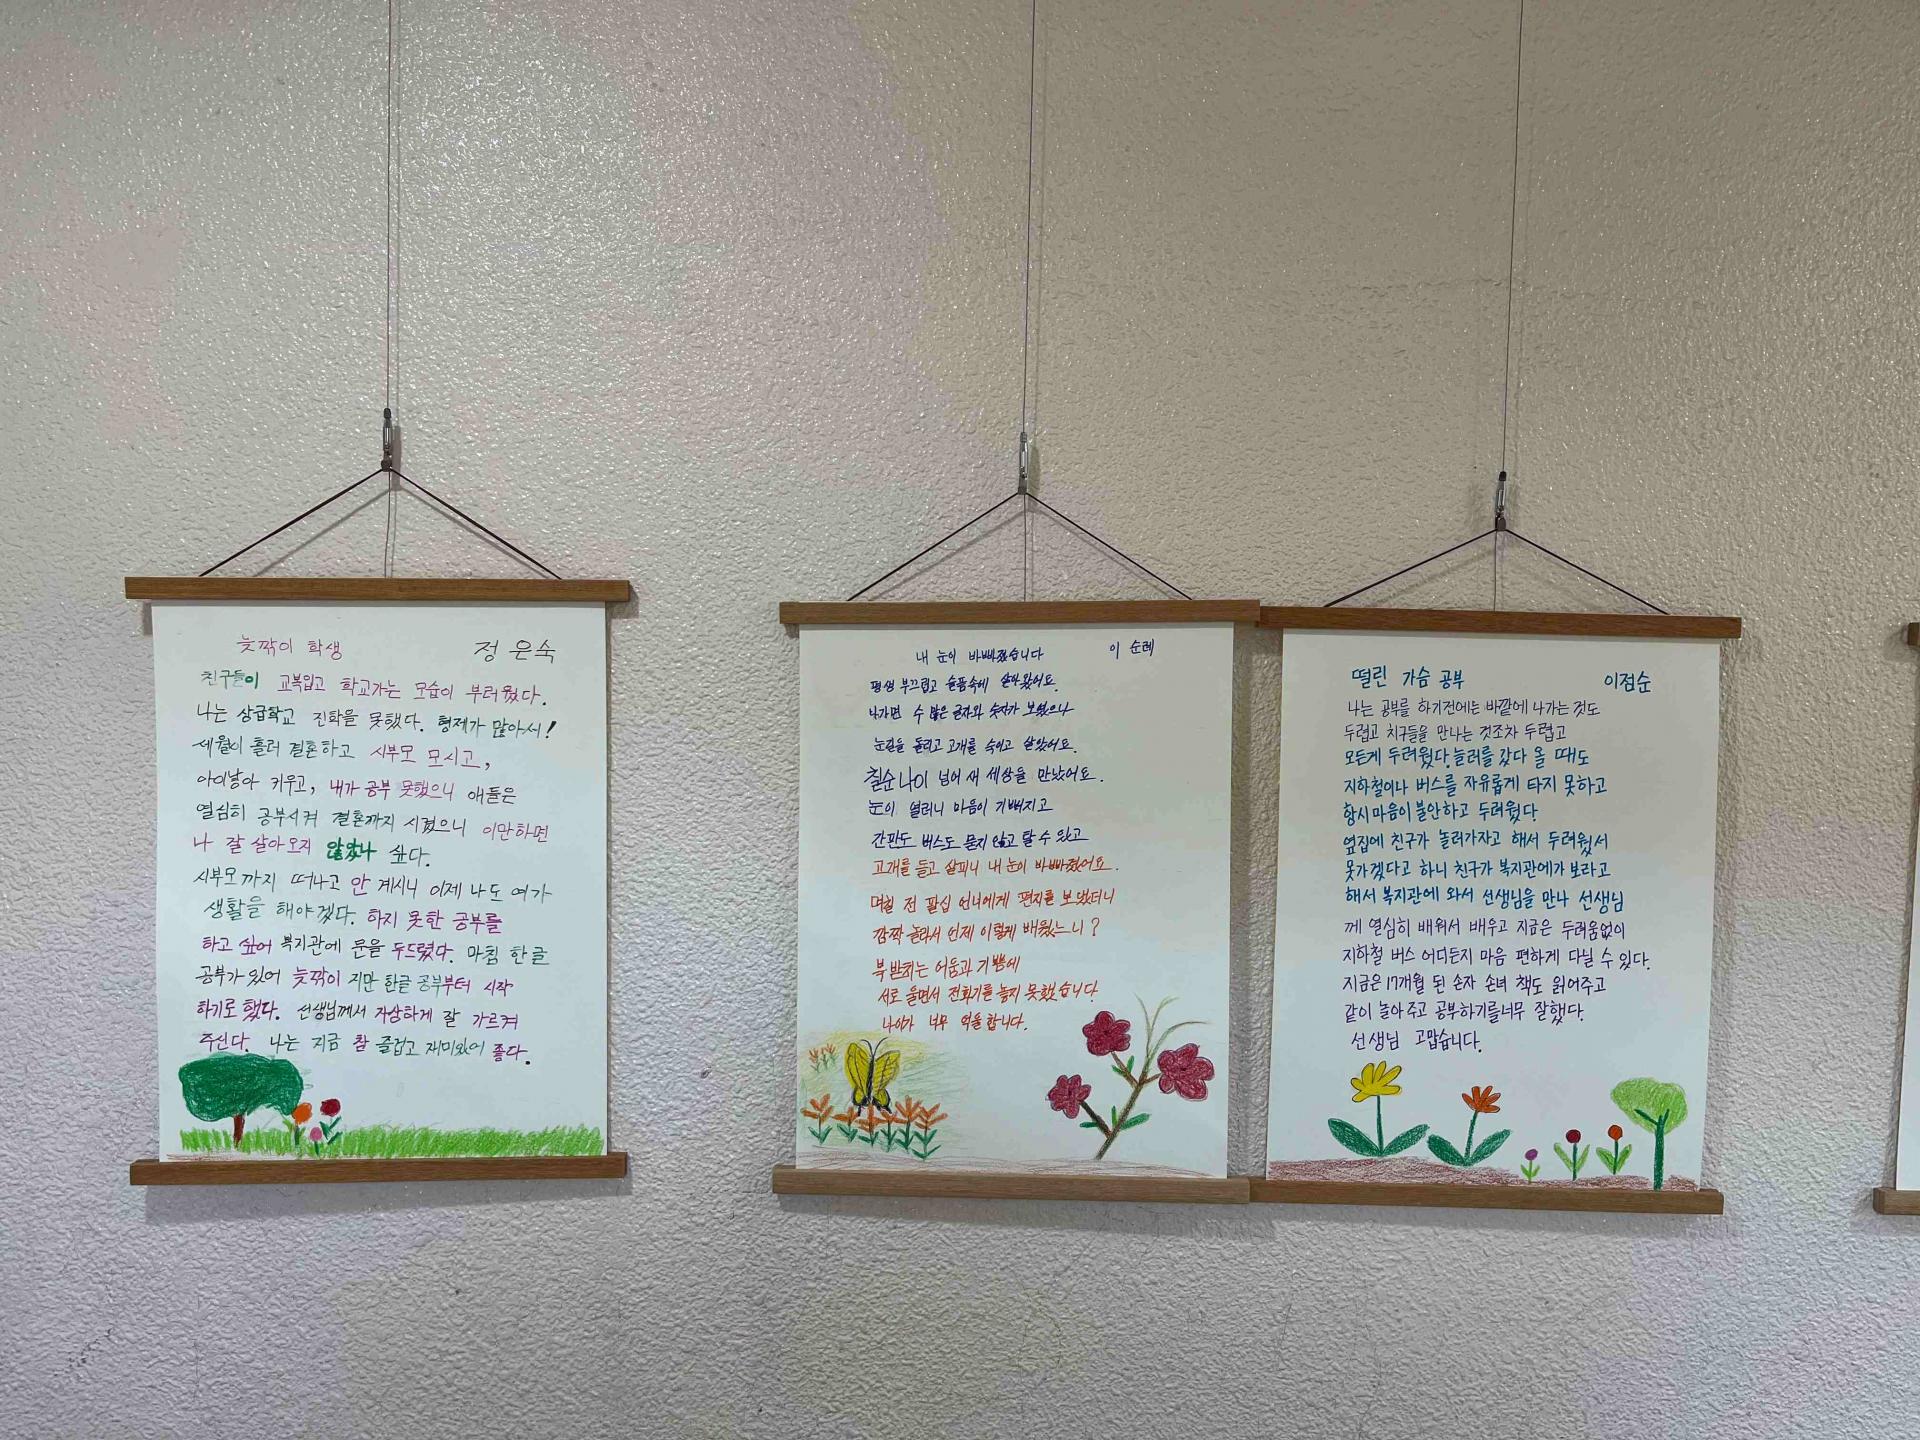 늦깎이 학생 정은숙
친구들이 교복입고 학교가는 모습이 부러웠다.
나는 상급학교 진학을 못했다. 형제가 많아서!
세월이 흘러 결혼하고 시부모 모시고,
아이낳아 키우고, 내가 공부 못했으니 애들은
열심히 공부시켜 결혼까지 시켰으니 이만하면
나 잘 살아오지 않았나 싶다.
시부모까지 떠나고 안 계시니 이제 나도 여가
생활을 해야겠다. 하지 못한 공부를
하고 싶어 복지관에 문을 두드렸다. 마침 한글
공부가 있어 늦깎이 지만 한글 공부부터 시작
하기로 했다. 선생님께서 자상하게 잘 가르켜
주신다. 나는 지금 참 즐겁고 재미있어 좋다.
내 눈이 바빠졌습니다 이 순례
평생 부끄럽고 슬픔속에 살아왔어요.
나가면 수 많은 글자와 숫자가 보였으나
눈길을 돌리고 고개를 숙이고 살았어요.
칠순나이 넘어 새 세상을 만났어요.
눈이 열리니 마음이 기뻐지고
간판도 버스도 묻지 않고 탈 수 있고
고개를 들고 살피니 내 눈이 바빠졌어요.
며칠 전 팔십 언니에게 편지를 보냈더니
깜짝 놀라서 언제 이렇게 배웠느니?
북받치는 어둠과 기쁨에
서로 울면서 전화기를 놓지 못했습니다
나이가 너무 억울합니다.
떨린 가슴 공부 이점순
나는 공부를 하기전에는 바깥에 나가는것도
두렵고 치구들을 만나는 것조차 두렵고
모든게 두려웠다. 놀러를 갔다 올 때도
지하철이나 버스를 자유롭게 타지 못하고
항시마음이 불안하고 두려웠다
옆집에 친구가 놀러가자고 해서 두려웠서
못가겠다고 하니 친구가 복지관에가 보라고
해서 복지관에 와서 선생님을 만나 선생님
께 열심히 배워서 배우고 지금은 두려움없이
지하철 버스 어디든지 마음 편하게 다닐 수 있다.
지금은 17개월 된 손자 손녀 책도 읽어주고
같이 놀아주고 공부하기를너무 잘했다.
선생님 고맙습니다.